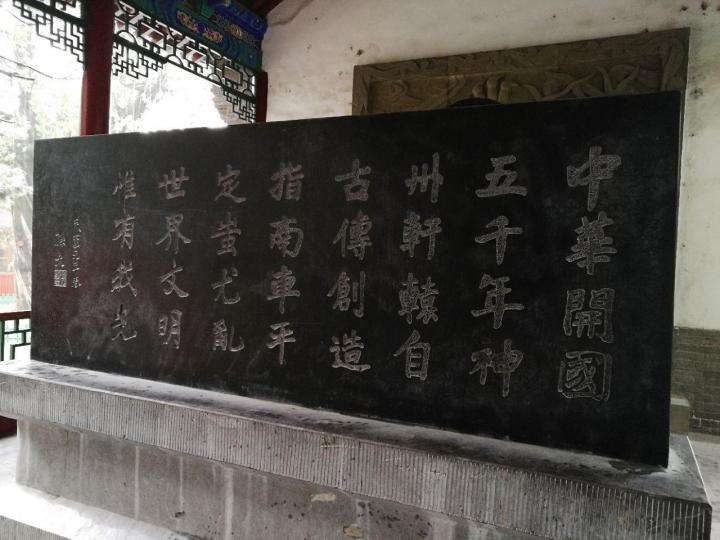 中華開國
五千年神
州軒轅自
古傳創造
指南車平
定蚩尤亂
世界文明
惟有我先
民國元年
孫文